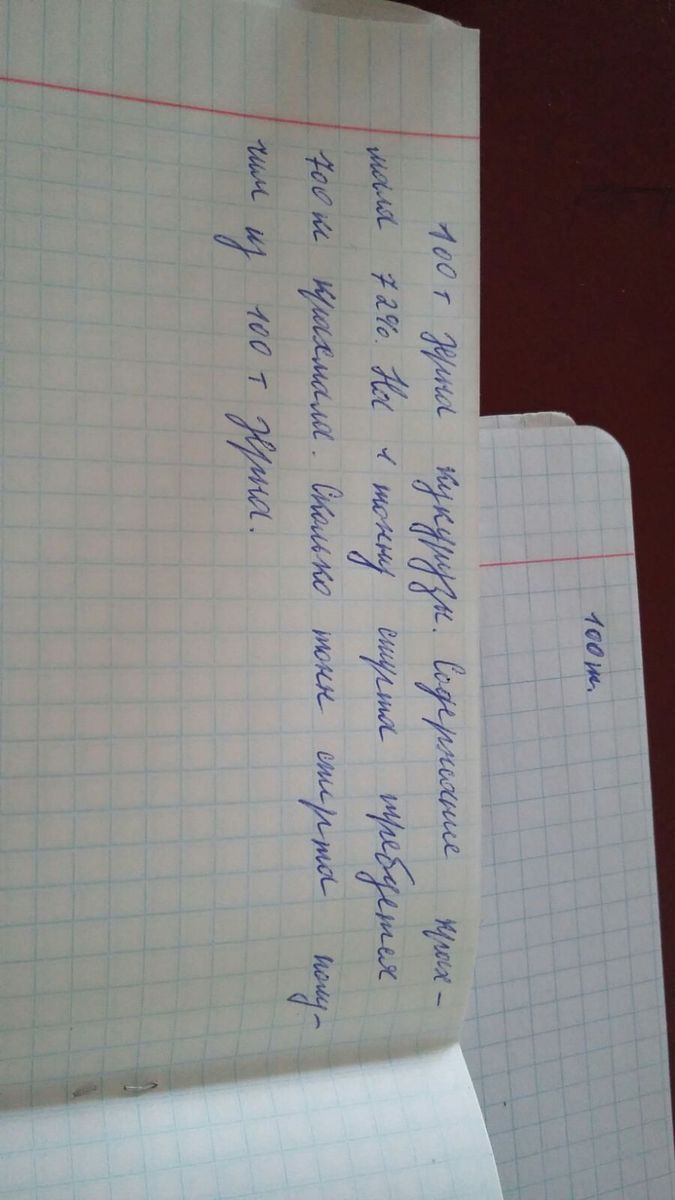 100 т зерна кукурузы. Содержание крах-
мала 72%. На 1 тонну спирта требуется
700 кг крахмала. Сколько тонн спирта полу-
чим из 100 т зерна.
100 т.